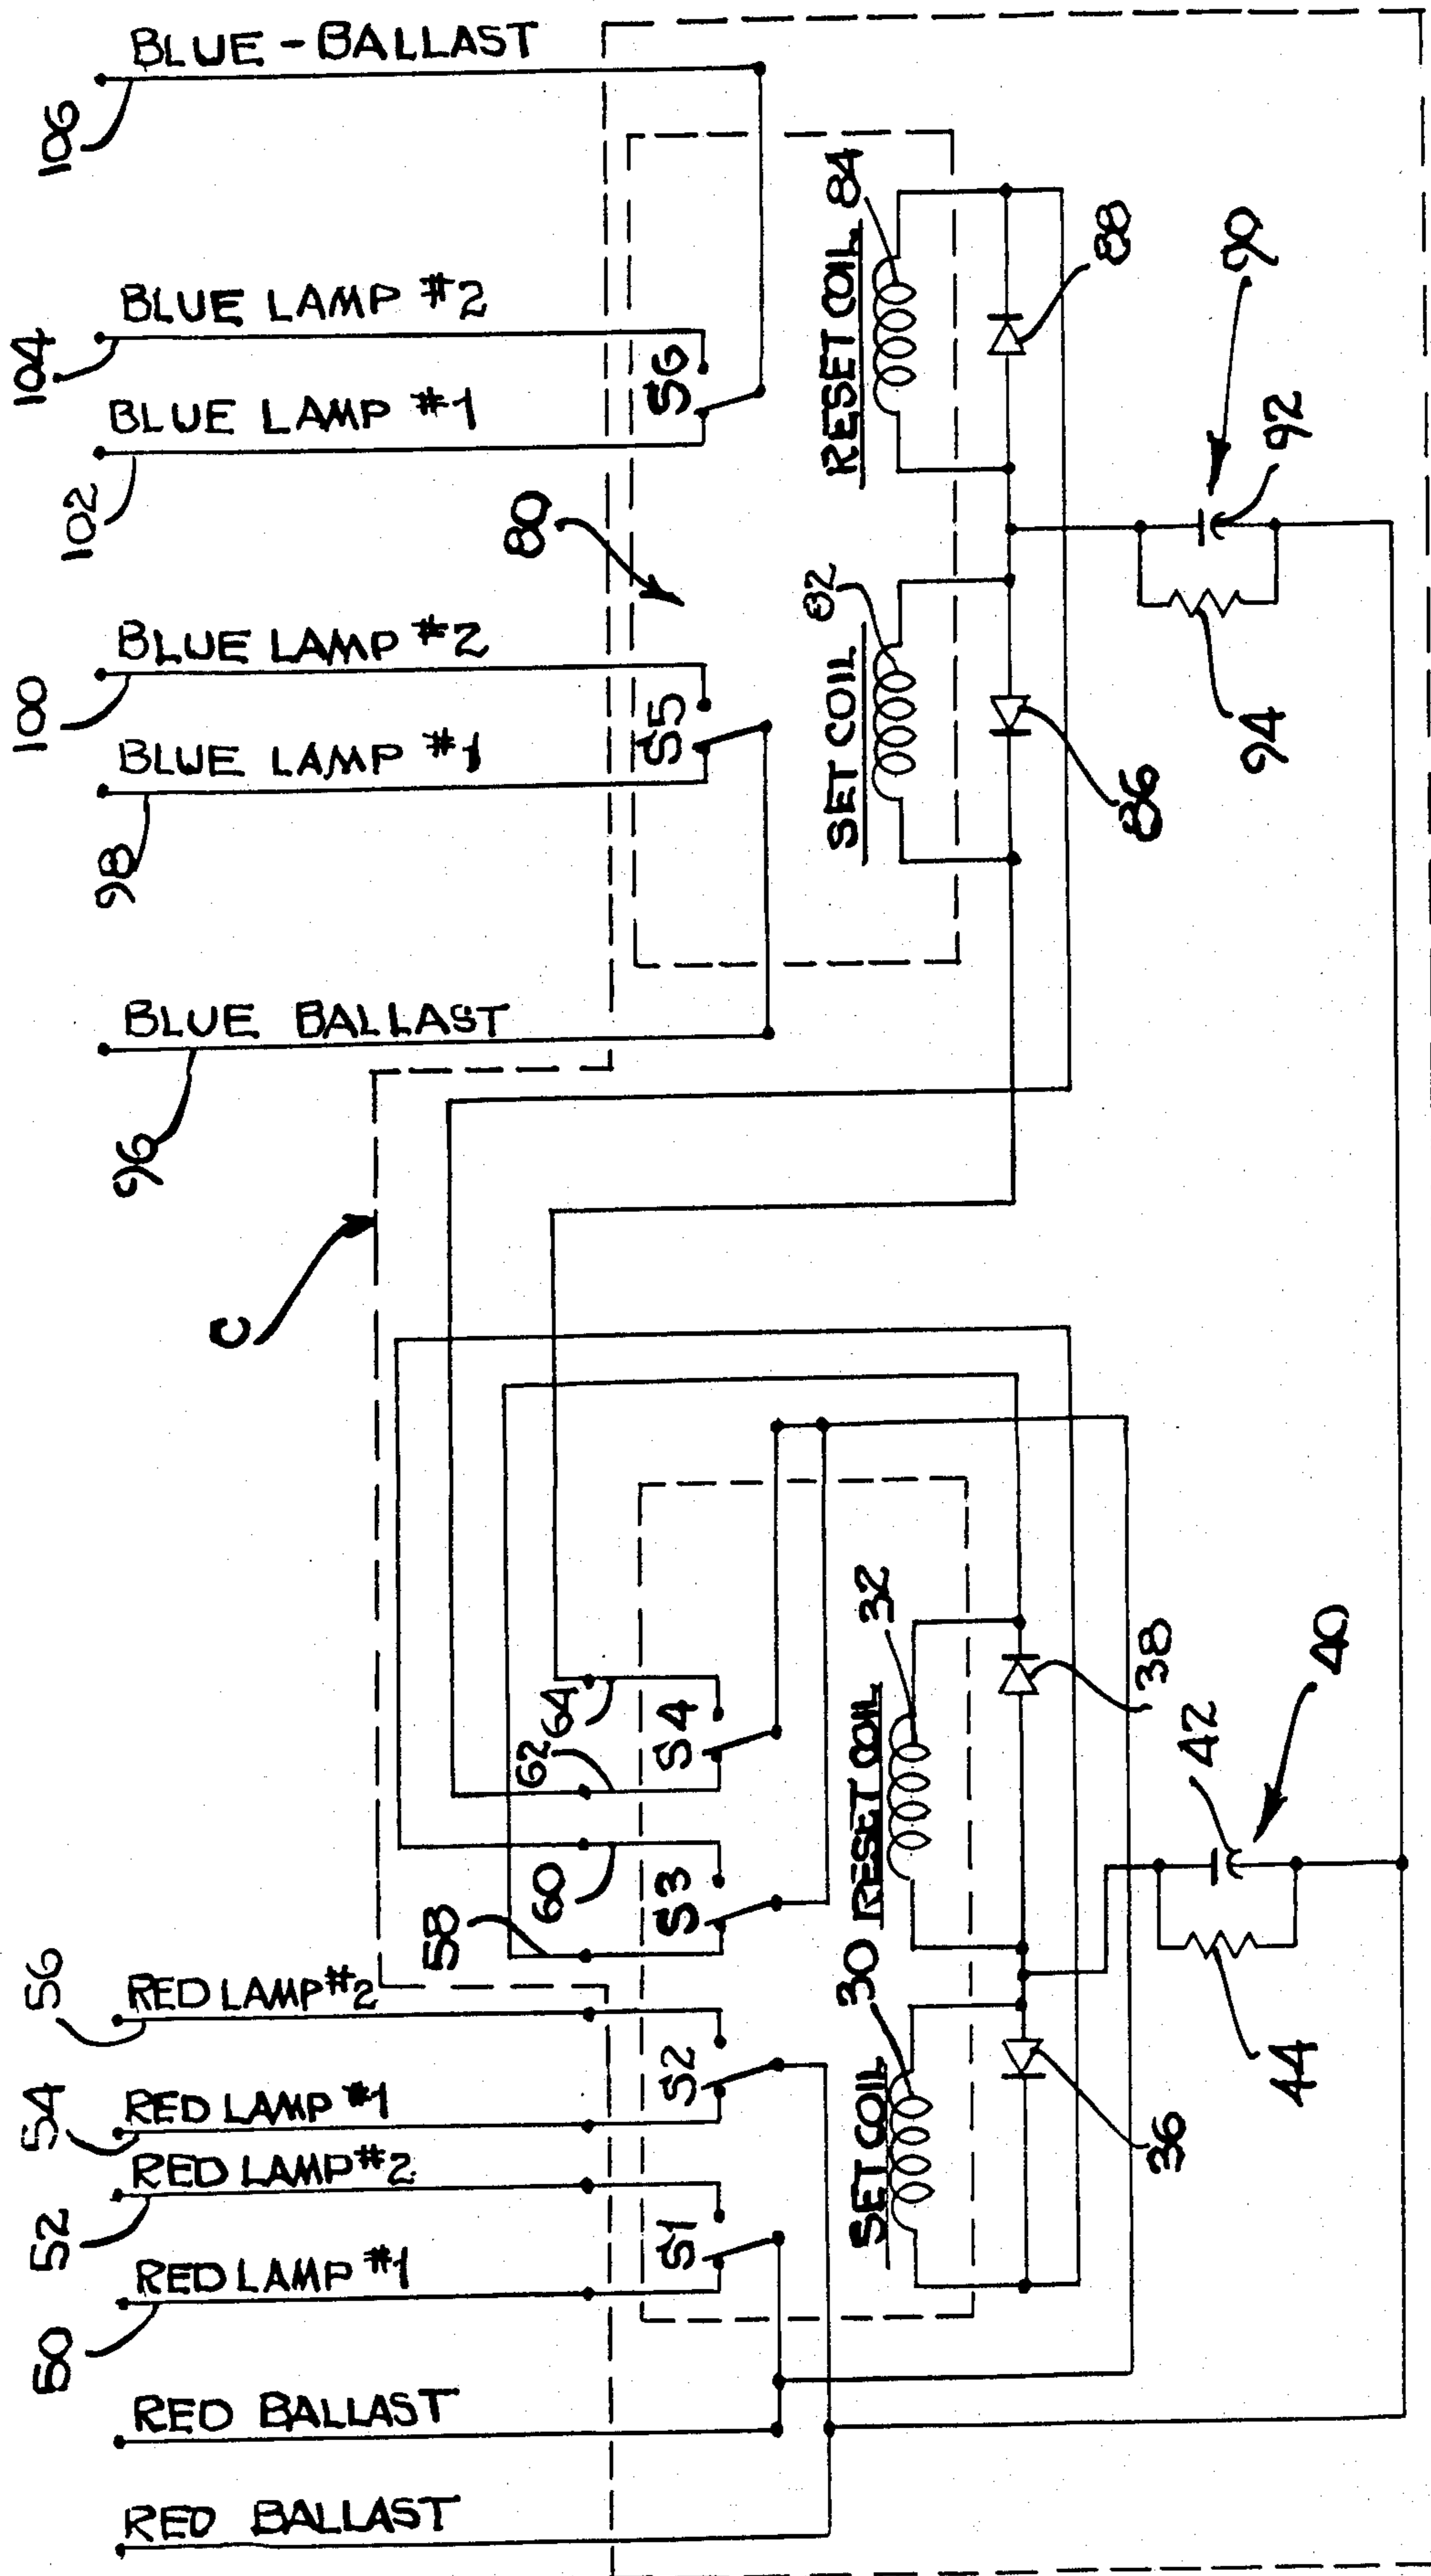 BLUE - BALLAST
106
BLUE LAMP #2
104
BLUE LAMP #1
102
S6
RESET COIL
84
88
90
92
94
80
BLUE LAMP #2
100
BLUE LAMP #1
98
S5
SET COIL
82
86
BLUE BALLAST
96
C
64
62
S4
60
58
S3
RESET COIL
32
38
40
42
44
RED LAMP #2
56
RED LAMP #1
54
S2
RED LAMP #2
52
RED LAMP #1
50
S1
SET COIL
30
36
RED BALLAST
RED BALLAST